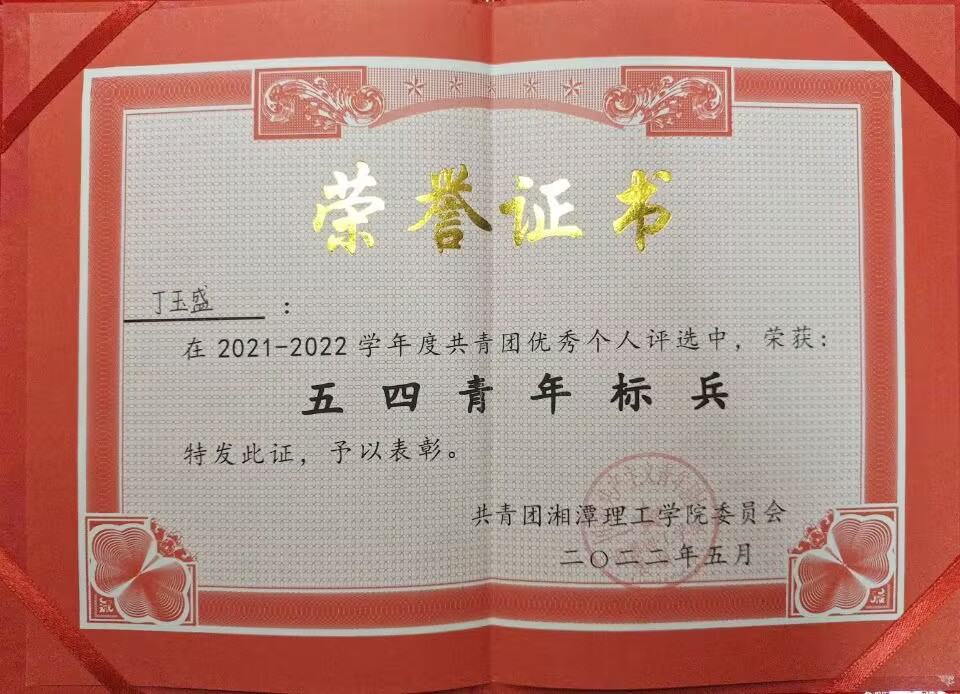 荣誉证书
丁玉盛 :
在2021-2022学年度共青团优秀个人评选中，荣获:
五四青年标兵
特发此证，予以表彰。
共青团湘潭理工学院委员会
二〇二二年五月